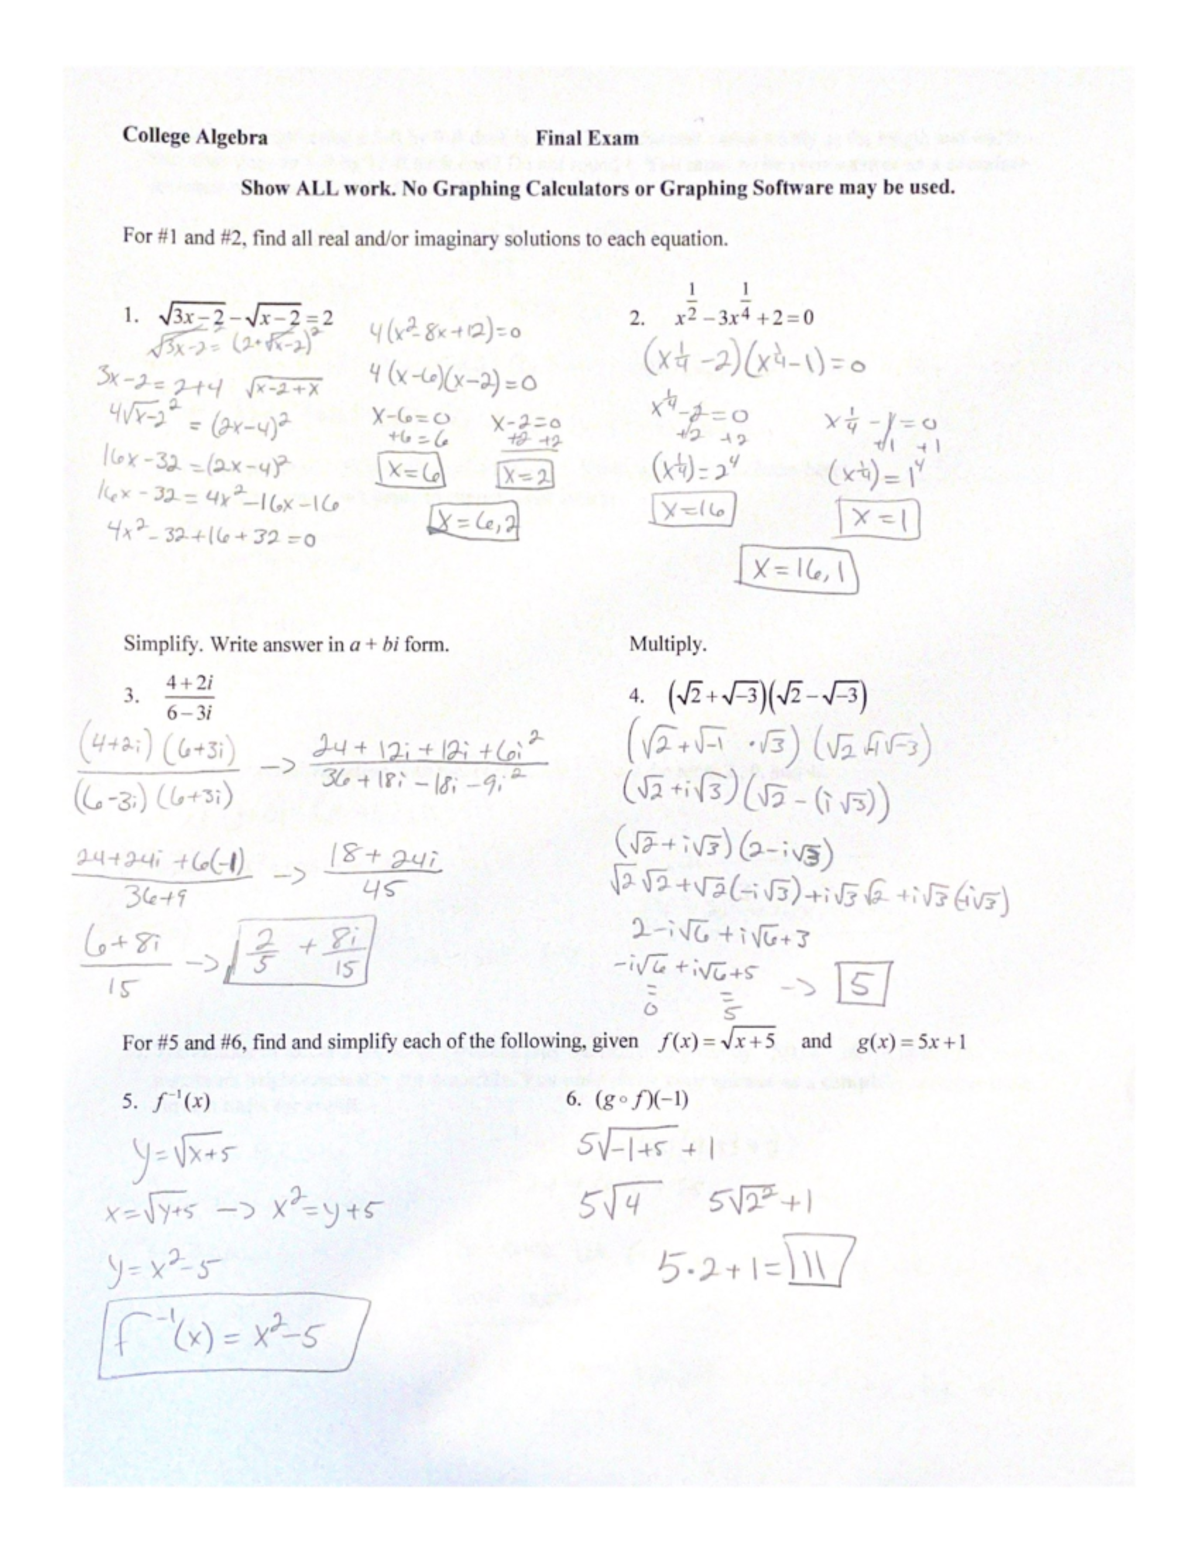 College Algebra Final Exam
Show ALL work. No Graphing Calculators or Graphing Software may be used.
For #1 and #2, find all real and/or imaginary solutions to each equation.
1. √(3x-2) - √(x-2) = 2
√3x-2 = (2+√x-2)²
3x-2 = 2+4 √x-2+x
4√x-2² = (2x-4)²
16x-32 = (2x-4)²
16x-32 = 4x²-16x-16
4x²-32+16+32=0
4(x²-8x+12)=0
4(x-6)(x-2)=0
x-6=0 x-2=0
+6=6 +2 +2
x=6 x=2
x=6,2
2. x^(1/2) - 3x^(1/4) + 2 = 0
(x^¼-2)(x^¼-1)=0
x^¼-2=0 x^¼-1=0
+2 +2 +1 +1
(x^¼)=2⁴ (x^¼)=1⁴
x=16 x=1
x=16,1
Simplify. Write answer in a + bi form.
3. (4+2i)/(6-3i)
(4+2i)(6+3i)/(6-3i)(6+3i) -> (24+12i+12i+6i²)/(36+18i-18i-9i²)
(24+24i+6(-1))/(36+9) -> (18+24i)/45
(6+8i)/15 -> 2/5 + 8i/15
Multiply.
4. (√2+√-3)(√2-√-3)
(√2+√-1 ·√3)(√2 -1√-3)
(√2+i√3)(√2-(i√3))
(√2+i√3)(2-i√3)
√2√2+√2(-i√3)+i√3√2+i√3(-i√3)
2-i√6+i√6+3
-i√6+i√6+5 -> 5
= =
0 5
For #5 and #6, find and simplify each of the following, given f(x)=√(x+5) and g(x)=5x+1
5. f⁻¹(x)
y=√x+5
x=√y+5 -> x²=y+5
y=x²-5
f⁻¹(x)=x²-5
6. (g∘f)(-1)
5√-1+5 +1
5√4 5√2²+1
5·2+1=11